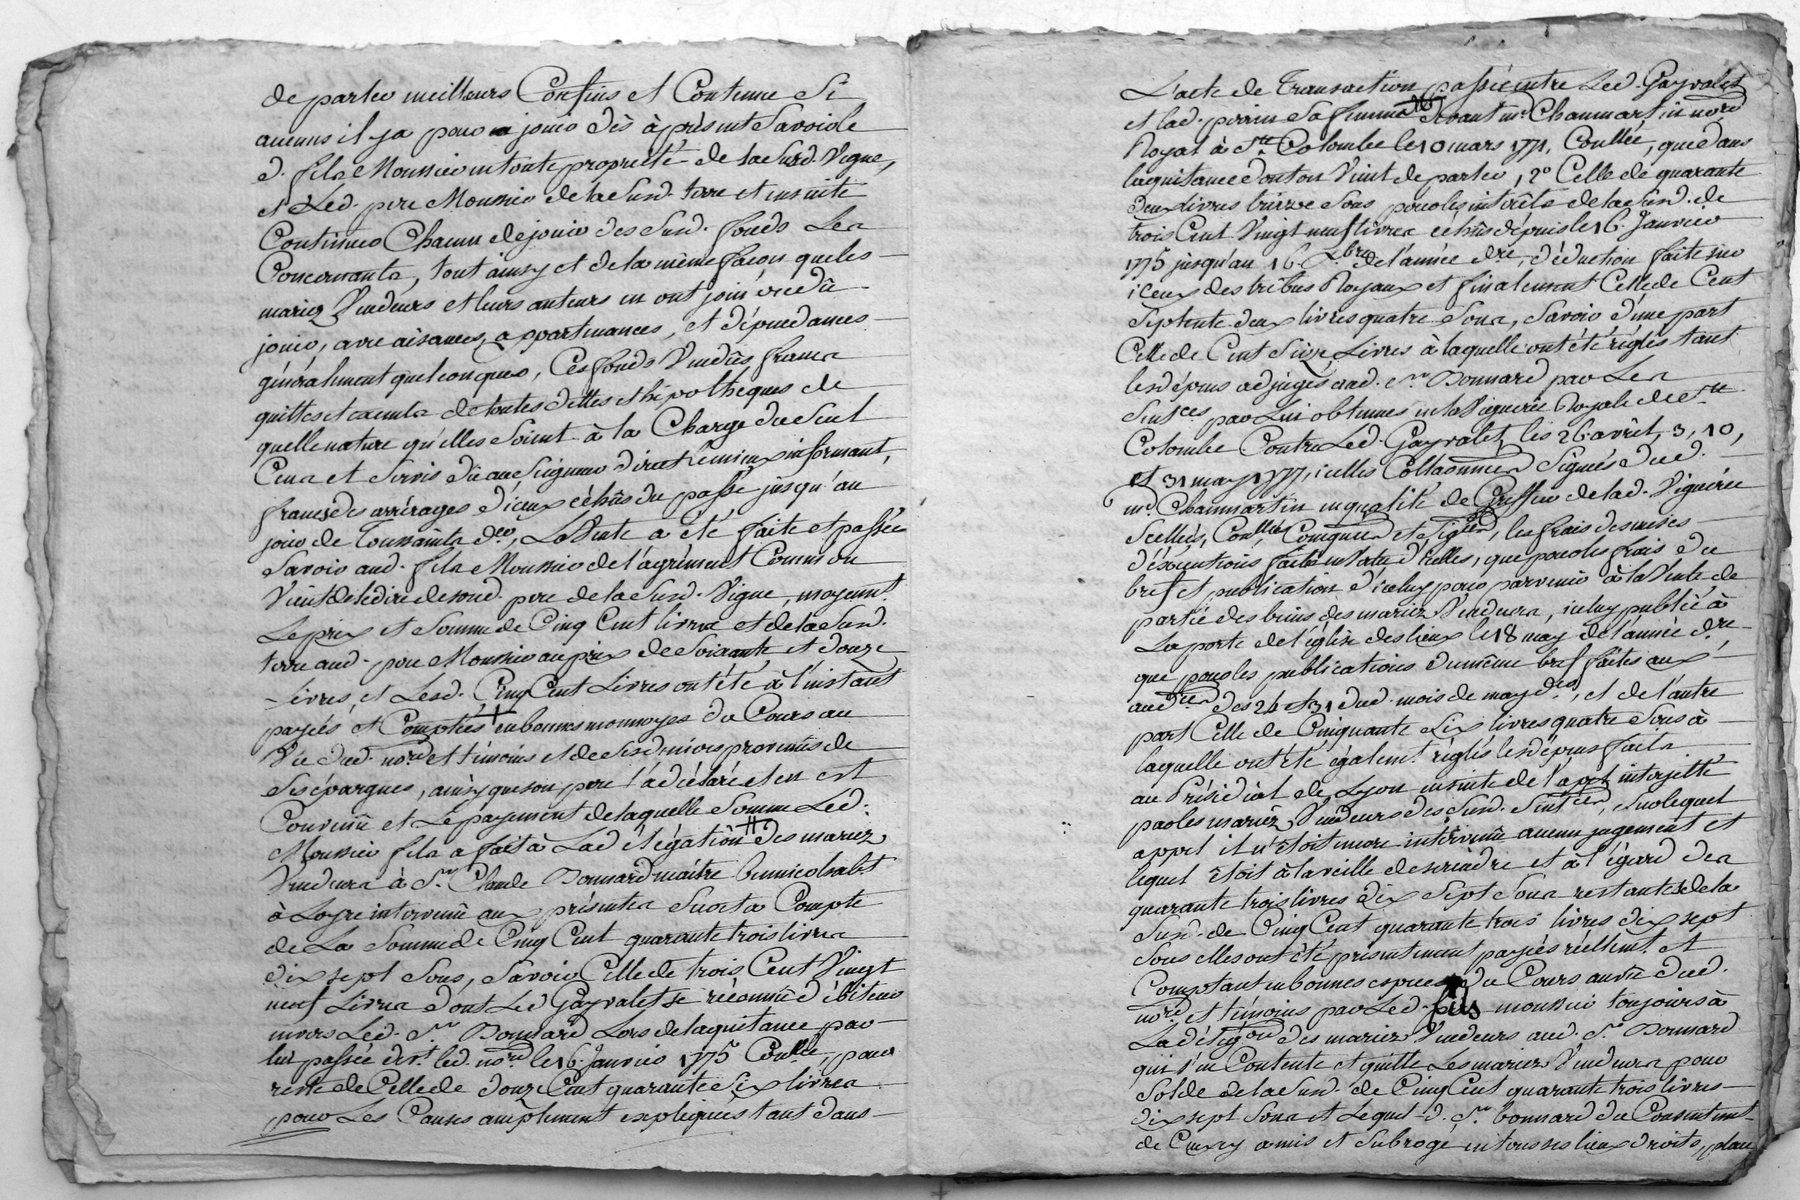 de parter meilleurs Confins et Contenue Si
aucuns il ya pour en jouir dès à présent Savoir le
d. fils Mounier en toute propriété de la susd. Vigne,
et Led. pere Mounier de la Susd. terre et ensuite
Continuer Chacun de jouir des Susd. fonds Les
Concernants, tout ainsy et de la même façon que les
mariez Vendeurs et leurs auteurs en ont joui ou dû
jouir, avec aisances, appartenances, et dépendances
généralement quelconques, Ces fonds Vendus francs
quittes et exempts de toutes dettes et hipothèques de
quelle nature qu'elles Soient à la Charge du Seul
Cens et Servis dû au Seigneur direct
francs des arrérages d'iceux échus du passé jusqu'au
jour de Toussaints der, La Vente a été faite et passée
Savoir aud. fils Mounier de l'agrément Comme on
Vient de le dire de sond. pere de la Susd. Vigne, moyent.
Le prix et Somme de Cinq Cent livres et de la Susd.
terre aud. pere Mounier au prix de Soixante et douze
Livres, et Lesd. Cinq Cent Livres ont été à l'instant
payés et Comptés en bonnes monnoyes du Cours au
Vu dud. nore et témoins et de Ses deniers provenus de
Ses épargnes, ainsy que son pere l'a déclaré et en est
Convenu et Le payement de laquelle Somme Led.
Mounier fils a fait à La délégation des mariez
Vendeurs à Sr. Claude Bonnard maître
à Loyre intervenu aux présentes Sur et à Compte
de La Somme de Cinq Cent quarante trois livres
dix sept Sous, Savoir Celle de trois Cent Vingt
neuf Livres dont Led Gayvalet se reconnu débiteur
envers Led. Sr. Bonnard Lors de la quitance par
lui passée devt. led. nore le 16. Janvier 1775 Conllée, pour
reste de Celle de douze Cent quarante Six livres
pour Les Causes amplement expliquées tant dans
L'acte de Transaction passé entre Led. Gayvalet
et lad. perrin Sa femme devant me. Chanmartin nore
Royal à Ste. Colombe le 10 mars 1771, Conllée, que dans
la quitance dont on Vient de parler, 2o Celle de quarante
deux livres treize Sous pour les intérêts de la Susd. de
trois Cent Vingt neuf livres échus depuis le 16. Janvier
1775 jusqu'au 16. Xbre de l'année dre, déduction faite sur
iceux des tributs Royaux et finalement Celle de Cent
Septente deux livres quatre Sous, Savoir d'une part
Celle de Cent Seize Livres à laquelle ont été réglés tant
les dépens adjugés aud. Sr. Bonnard par Les
Sentces. par Lui obtenues en la Viguerie Royale de Ste
Colombe Contre Led. Gayvalet les 26 avril, 3, 10,
et 31 may 1777, icelles Collaonnées Signées dud.
me. Chanmartin en qualité de Greffier de lad. Viguerie
Scellées, Conllées et Signées, les frais des mises
d'éxécutions faites en Vertu d'icelles, que pour les frais du
bref et publication d'iceluy pour parvenir à la Vente de
partie des biens des mariez Vendeurs, iceluy publié à
La porte de l'église des lieux le 18 may de l'année dre
que pour les publications du même bref faites aux
audces. des 24 et 31 dud. mois de may der, et de l'autre
part Celle de Cinquante Six livres quatre Sous à
laquelle ont été égalemt. réglés les dépens faits
au Présidial de Lyon ensuite de l'apel interjetté
par les mariez Vendeurs des Susd. Sentces, sur lequel
appel il n'étoit encore intervenu aucun jugement et
lequel étoit à la veille de se rendre et à l'égard des
quarante trois livres dix Sept Sous restantes de la
Susd. de Cinq Cent quarante trois livres dix sept
Sous elles ont été présentement payées réellemt. et
Comptant en bonnes espèces du Cours au vu dud.
nore. et témoins par Led. fils mounier toujours à
La délégaon des mariez Vendeurs aud. Sr Bonnard
qui s'en Contente et quitte Les mariez Vendeurs pour
Solde de la Susd. de Cinq Cent quarante trois livres
dix sept Sous et Lequel d. Sr. bonnard du Consentemt.
de Ceuxcy a mis et Subrogé en tous ses lieux droits, place